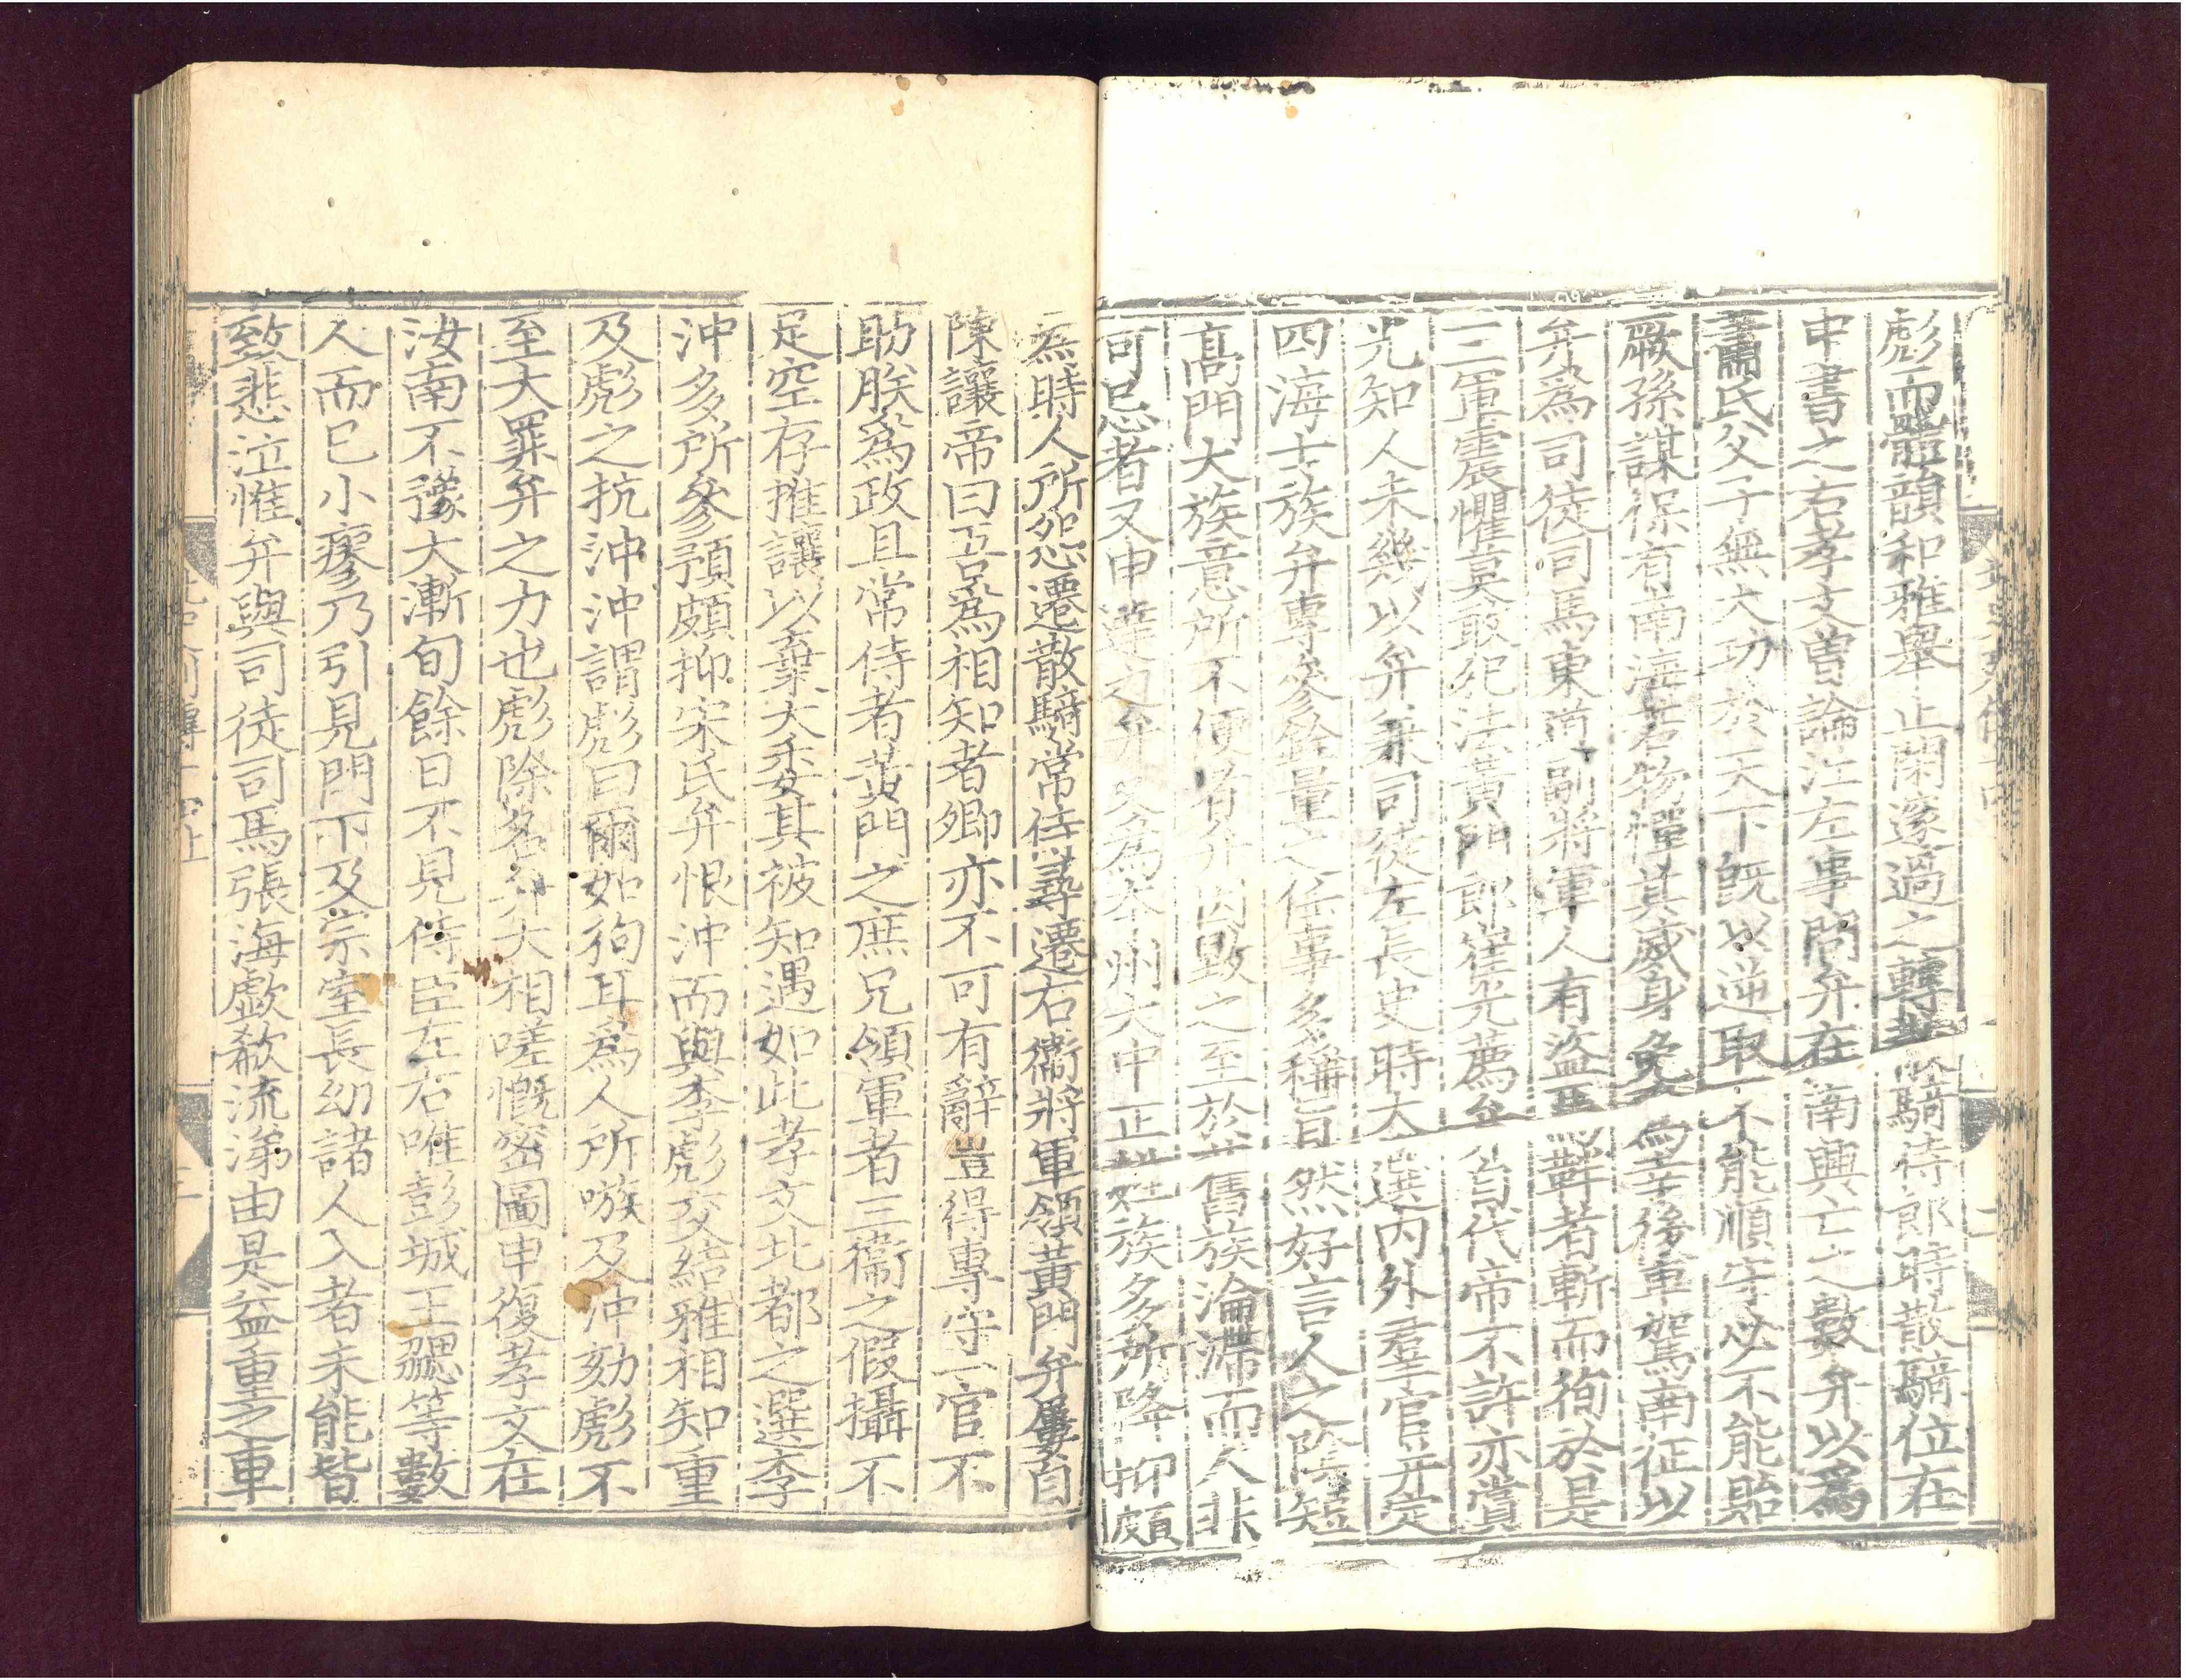 彪而體韻和雅舉止閑邃過之轉散騎侍郎時散騎位在
中書之右孝文曽論江左事問弁在南興亡之數弁以爲
蕭氏父子無大功於天下旣以逆取不能順守必不能貽
厥孫謀保有南海若物憚其威身免爲幸後車駕南征以
弁爲司徒司馬東道副將軍人有盜馬靽者斬而徇於是
三軍震懼莫敢犯法黃門郎崔光薦弁自代帝不許亦賞
光知人未幾以弁兼司徒左長史時大選內外羣官并定
四海士族弁專參銓量之任事多稱旨然好言人之陰短
髙門大族意所不便者弁因毀之至於舊族淪滯而人非
可忌者又申達之弁又爲本州大中正姓族多所降抑頗
爲時人所怨遷散騎常侍尋遷右衞將軍領黃門弁屢自
陳讓帝曰吾爲相知者卿亦不可有辭豈得專守一官不
助朕爲政且常侍者黃門之庶兄領軍者三衞之假攝不
足空存推讓以棄大委其被知遇如此孝文北都之選李
沖多所參預頗抑宋氏弁恨沖而與李彪交結雅相知重
及彪之抗沖沖謂彪曰爾如狗耳爲人所嗾及沖劾彪不
至大罪弁之力也彪除名弁大相嗟慨密圖申復孝文在
汝南不豫大漸旬餘日不見侍臣左右唯彭城王勰等數
人而巳小瘳乃引見門下及宗室長幼諸人入者未能皆
致悲泣惟弁與司徒司馬張海歔欷流涕由是益重之車